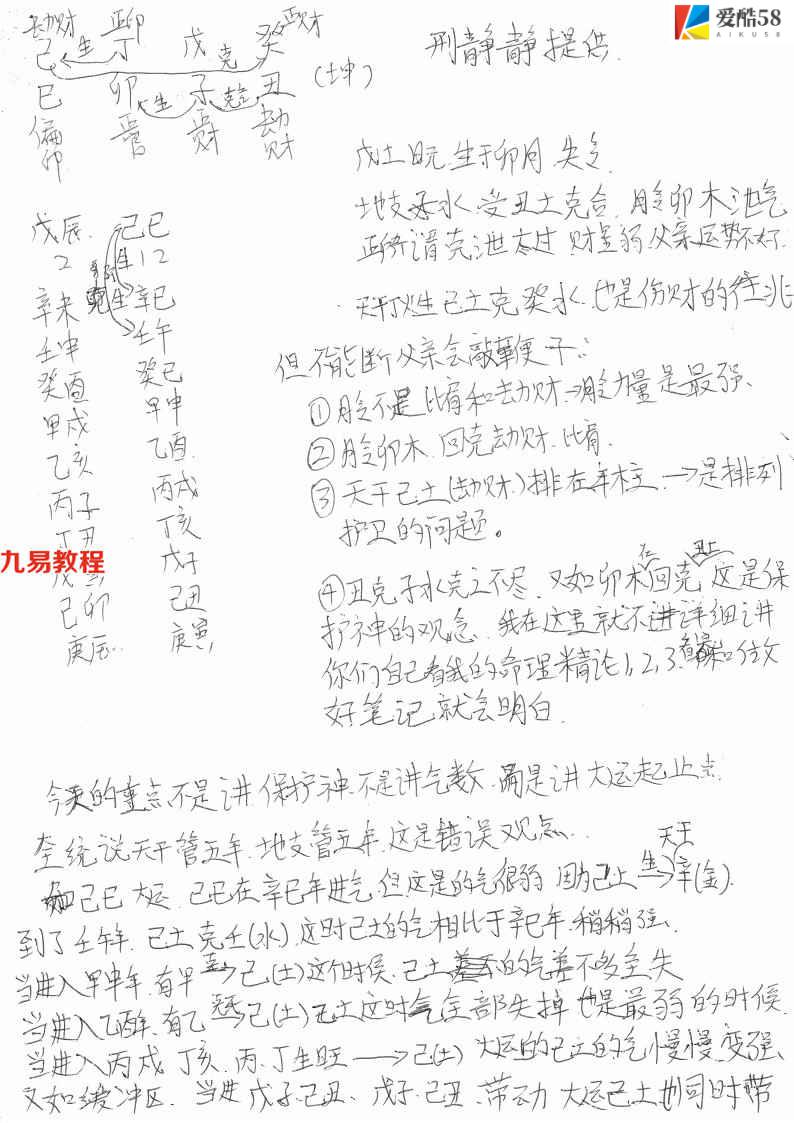 爱酷58
AIKU58
刑静静提供.
劫财 正印 正财
己 生 丁 戊 克 癸
巳 卯 生 子 克合 丑 (土中)
偏印 正官 正财 劫财
戊土日元.生于卯月.失令
地支子水.受丑土克合.月令卯木泄气
克泄太过.财星弱.父亲运势不好.
天干丁火生己土克癸水.也是伤财的
但不能断父亲会敲鞭子:
①月令不是比肩和劫财.→月令力量是最强、
②月令卯木.回克劫财.比肩.
③天干己土(劫财)排在年柱.→是排列
护卫的问题。
④丑克子水克之不尽.又如卯木在回克丑土.这是保
护神的观念.我在这里就不讲详细讲
你们自己看我的命理精论1,2,3.做
好笔记就会明白.
戊辰. 己巳
2 生 12
辛未 克 生 辛巳
壬申 壬午
癸酉 癸巳
甲戌 甲申
乙亥 乙酉
丙子 丙戌
丁丑 丁亥
九易教程
戊 戊子
己卯 己丑
庚辰. 庚寅
今天的重点不是讲保护神.不是讲气数.而是讲大运起止点.
说天干管五年.地支管五年.这是错误观点..
天干
如己巳大运.己巳在辛巳年进气.但这是的气很弱 因为己土 生→辛(金).
到了壬午年.己土克壬(水).这时己土的气相比于辛巳年.稍稍强、
当进入甲申年.有甲 克→己(土)这个时候.己土的气差不多全失
当进入乙酉年.有乙 克→己(土)己土这时气全部失掉 也是最弱的时候.
当进入丙戌.丁亥.丙.丁生旺→己(土) 大运的己土的气慢慢变强、
又如缓冲区.当进戊子.己丑.戊子.己丑.带动大运己土也同时带